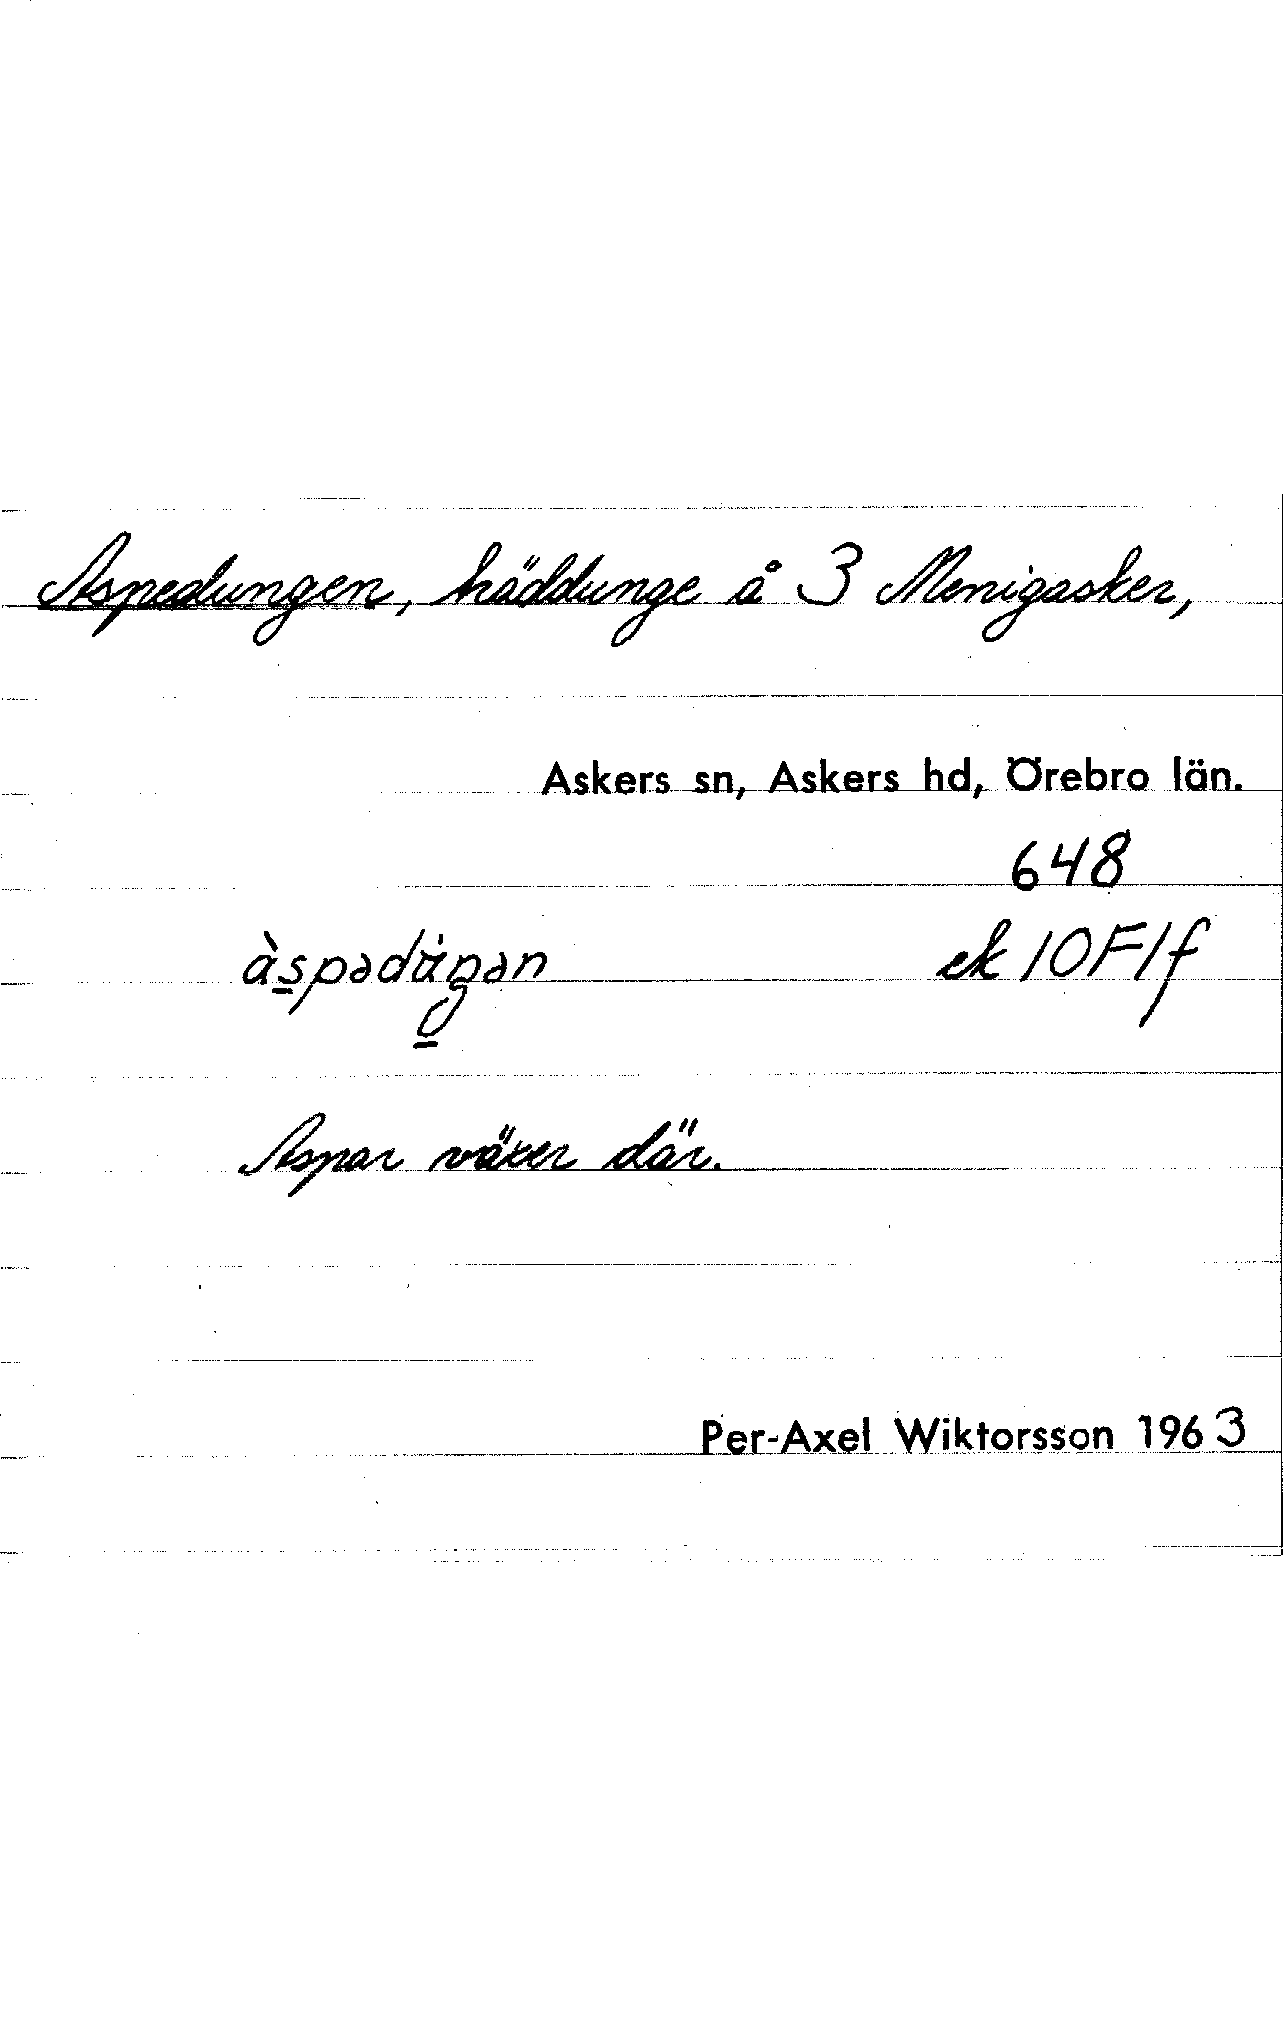 Aspedungen, träddunge å 3 Menigasker,
Askers sn, Askers hd, Örebro län.
648
àspədu̇ŋən ek 10F1f
Aspar växer där.
Per-Axel Wiktorsson 1963